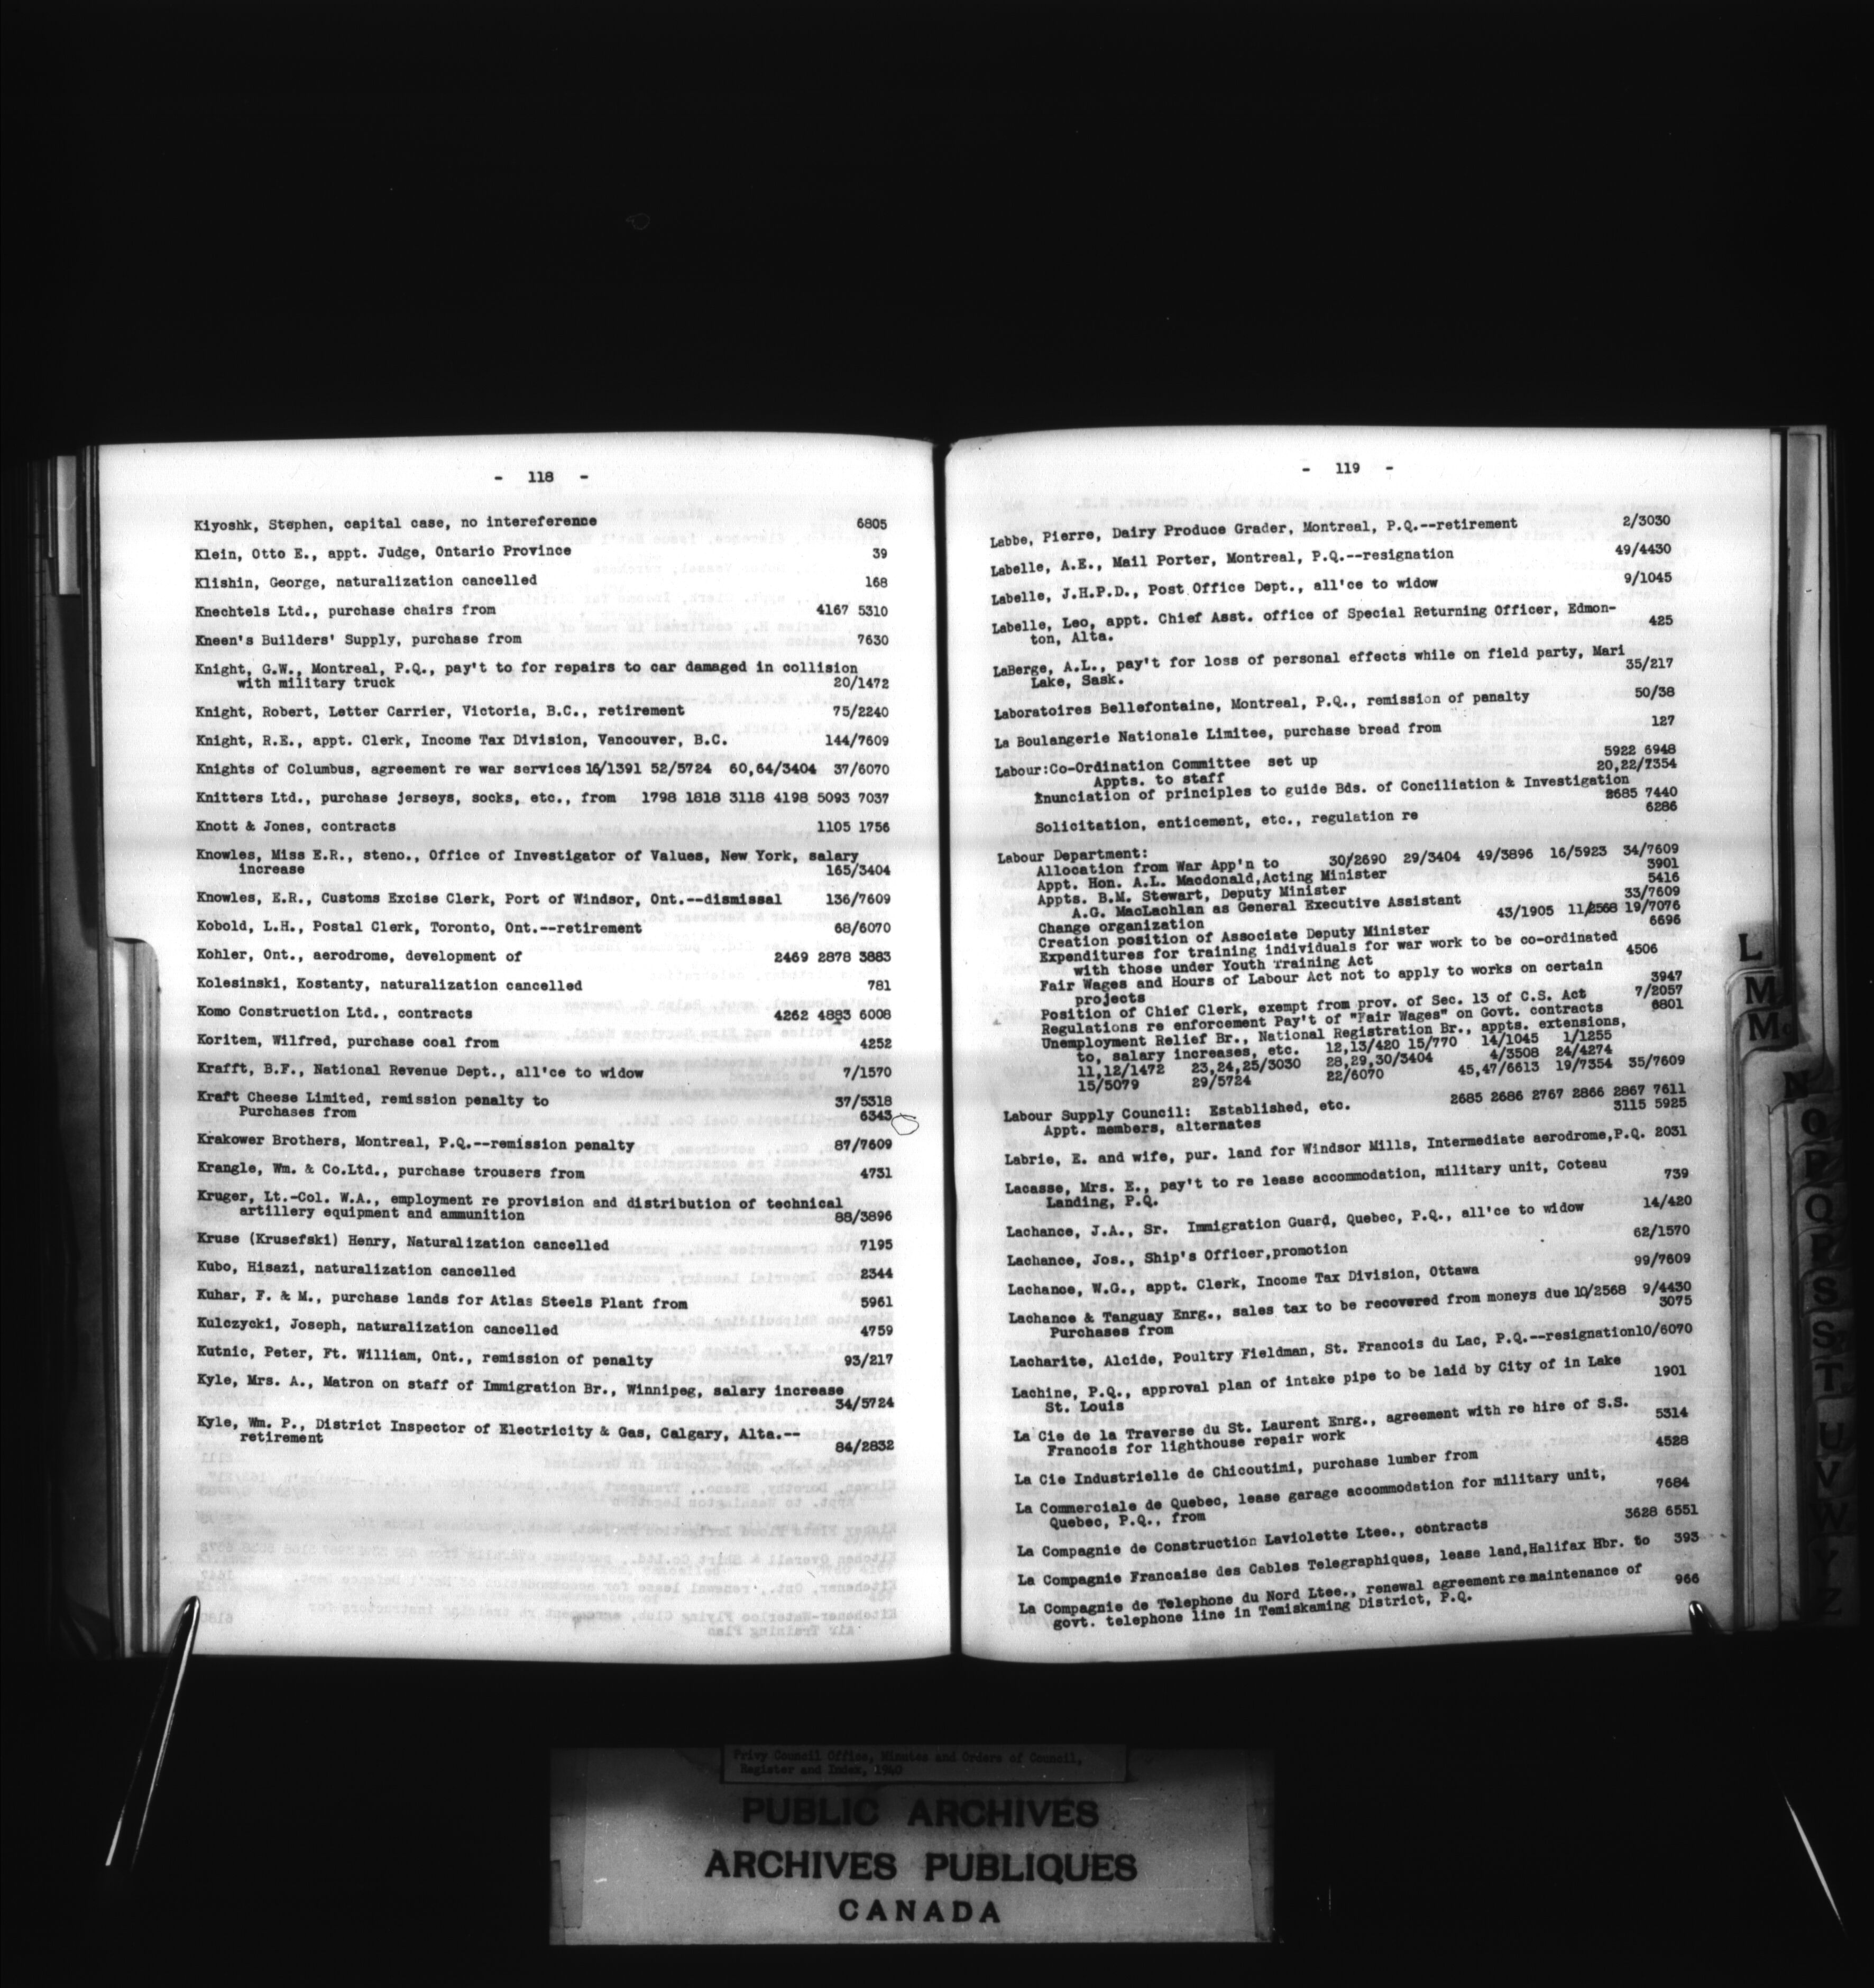 - 118 -
Kiyoshk, Stephen, capital case, no intereference 6805
Klein, Otto E., appt. Judge, Ontario Province 39
Klishin, George, naturalization cancelled 168
Knechtels Ltd., purchase chairs from 4167 5310
Kneen's Builders' Supply, purchase from 7630
Knight, G.W., Montreal, P.Q., pay't to for repairs to car damaged in collision
with military truck 20/1472
Knight, Robert, Letter Carrier, Victoria, B.C., retirement 75/2240
Knight, R.E., appt. Clerk, Income Tax Division, Vancouver, B.C. 144/7609
Knights of Columbus, agreement re war services 16/1391 52/5724 60,64/3404 37/6070
Knitters Ltd., purchase jerseys, socks, etc., from 1798 1818 3118 4198 5093 7037
Knott & Jones, contracts 1105 1756
Knowles, Miss E.R., steno., Office of Investigator of Values, New York, salary
increase 165/3404
Knowles, E.R., Customs Excise Clerk, Port of Windsor, Ont.--dismissal 136/7609
Kobold, L.H., Postal Clerk, Toronto, Ont.--retirement 68/6070
Kohler, Ont., aerodrome, development of 2469 2878 3883
Kolesinski, Kostanty, naturalization cancelled 781
Komo Construction Ltd., contracts 4262 4883 6008
Koritem, Wilfred, purchase coal from 4252
Krafft, B.F., National Revenue Dept., all'ce to widow 7/1570
Kraft Cheese Limited, remission penalty to 37/5318
Purchases from 6343
Krakower Brothers, Montreal, P.Q.--remission penalty 87/7609
Krangle, Wm. & Co.Ltd., purchase trousers from 4731
Kruger, Lt.-Col. W.A., employment re provision and distribution of technical
artillery equipment and ammunition 88/3896
Kruse (Krusefski) Henry, Naturalization cancelled 7195
Kubo, Hisazi, naturalization cancelled 2344
Kuhar, F. & M., purchase lands for Atlas Steels Plant from 5961
Kulczycki, Joseph, naturalization cancelled 4759
Kutnic, Peter, Ft. William, Ont., remission of penalty 93/217
Kyle, Mrs. A., Matron on staff of Immigration Br., Winnipeg, salary increase
34/5724
Kyle, Wm. P., District Inspector of Electricity & Gas, Calgary, Alta.--
retirement 84/2832
- 119 -
Labbe, Pierre, Dairy Produce Grader, Montreal, P.Q.--retirement 2/3030
Labelle, A.E., Mail Porter, Montreal, P.Q.--resignation 49/4430
Labelle, J.H.P.D., Post Office Dept., all'ce to widow 9/1045
Labelle, Leo, appt. Chief Asst. office of Special Returning Officer, Edmon-
ton, Alta. 425
LaBerge, A.L., pay't for loss of personal effects while on field party, Mari
Lake, Sask. 35/217
Laboratoires Bellefontaine, Montreal, P.Q., remission of penalty 50/38
La Boulangerie Nationale Limitee, purchase bread from 127
Labour:Co-Ordination Committee set up 5922 6948
Appts. to staff 20,22/7354
Enunciation of principles to guide Bds. of Conciliation & Investigation
2685 7440
Solicitation, enticement, etc., regulation re 6286
Labour Department:
Allocation from War App'n to 30/2690 29/3404 49/3896 16/5923 34/7609
Appt. Hon. A.L. Macdonald,Acting Minister 3901
Appts. B.M. Stewart, Deputy Minister 5416
A.G. MacLachlan as General Executive Assistant 33/7609
Change organization 43/1905 11/2568 19/7076
Creation position of Associate Deputy Minister 6696
Expenditures for training individuals for war work to be co-ordinated
with those under Youth Training Act 4506
Fair Wages and Hours of Labour Act not to apply to works on certain
projects 3947
Position of Chief Clerk, exempt from prov. of Sec. 13 of C.S. Act 7/2057
Regulations re enforcement Pay't of "Fair Wages" on Govt. contracts 6801
Unemployment Relief Br., National Registration Br., appts. extensions,
to, salary increases, etc. 12,13/420 15/770 14/1045 1/1255
11,12/1472 23,24,25/3030 28,29,30/3404 4/3508 24/4274
15/5079 29/5724 22/6070 45,47/6613 19/7354 35/7609
Labour Supply Council: Established, etc. 2685 2686 2767 2866 2867 7611
Appt. members, alternates 3115 5925
Labrie, E. and wife, pur. land for Windsor Mills, Intermediate aerodrome,P.Q. 2031
Lacasse, Mrs. E., pay't to re lease accommodation, military unit, Coteau
Landing, P.Q. 739
Lachance, J.A., Sr. Immigration Guard, Quebec, P.Q., all'ce to widow 14/420
Lachance, Jos., Ship's Officer,promotion 62/1570
Lachance, W.G., appt. Clerk, Income Tax Division, Ottawa 99/7609
Lachance & Tanguay Enrg., sales tax to be recovered from moneys due 10/2568 9/4430
Purchases from 3075
Lacharite, Alcide, Poultry Fieldman, St. Francois du Lac, P.Q.--resignation10/6070
Lachine, P.Q., approval plan of intake pipe to be laid by City of in Lake
St. Louis 1901
La Cie de la Traverse du St. Laurent Enrg., agreement with re hire of S.S.
Francois for lighthouse repair work 5314
La Cie Industrielle de Chicoutimi, purchase lumber from 4528
La Commerciale de Quebec, lease garage accommodation for military unit,
Quebec, P.Q., from 7684
La Compagnie de Construction Laviolette Ltee., contracts 3628 6551
La Compagnie Francaise des Cables Telegraphiques, lease land,Halifax Hbr. to 393
La Compagnie de Telephone du Nord Ltee., renewal agreement re maintenance of
govt. telephone line in Temiskaming District, P.Q. 966
L
M
Mc
N
O
P
Q
R
S
S
T
U
V
W
Y
Z
Privy Council Office, Minutes and Orders of Council,
Register and Index, 1940
PUBLIC ARCHIVES
ARCHIVES PUBLIQUES
CANADA